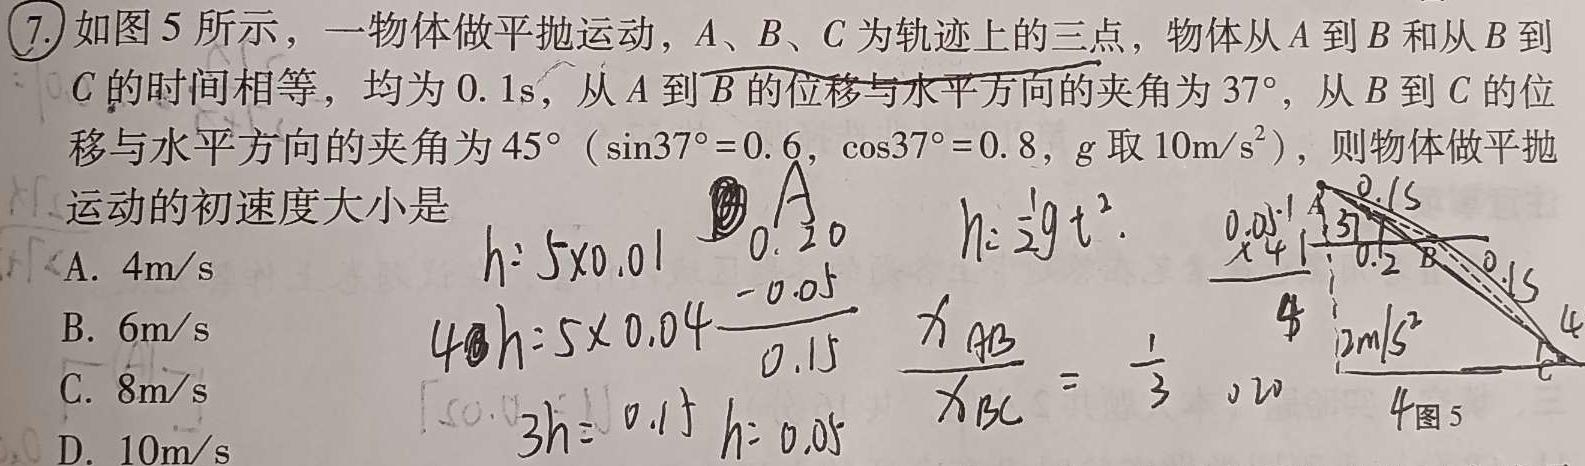 7. 如图5所示，一物体做平抛运动，A、B、C为轨迹上的三点，物体从A到B和从B到
C的时间相等，均为0.1s，从A到B的位移与水平方向的夹角为37°，从B到C的位
移与水平方向的夹角为45°（sin37°=0.6，cos37°=0.8，g取10m/s²），则物体做平抛
运动的初速度大小是
A. 4m/s
B. 6m/s
C. 8m/s
D. 10m/s
h=5×0.01
4h=5×0.04
3h=0.15
h=0.05
A
0.20
-0.05
0.15
h=½gt².
x_AB/x_BC=1/3
0.05
×4
0.20
A
0.1s
37
0.2
B
0.1s
2m/s²
C
4
4
图5